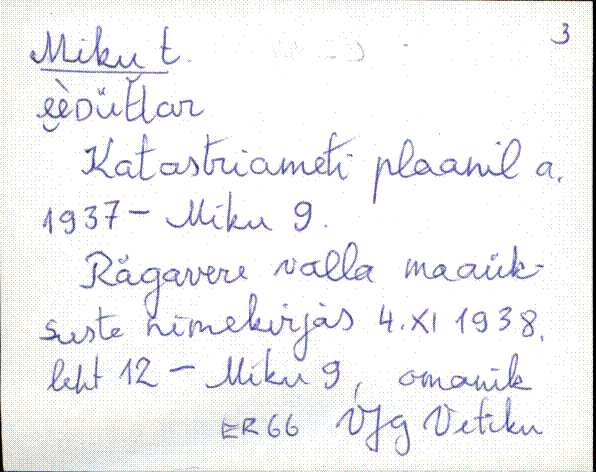 3
Miku t.
Katastriameti plaanil a.
1937 - Miku 9.
Rägavere valla maaük-
suste nimekirjas 4. XI 1938,
leht 12 - Miku 9, omanik
ER66 Vetiku